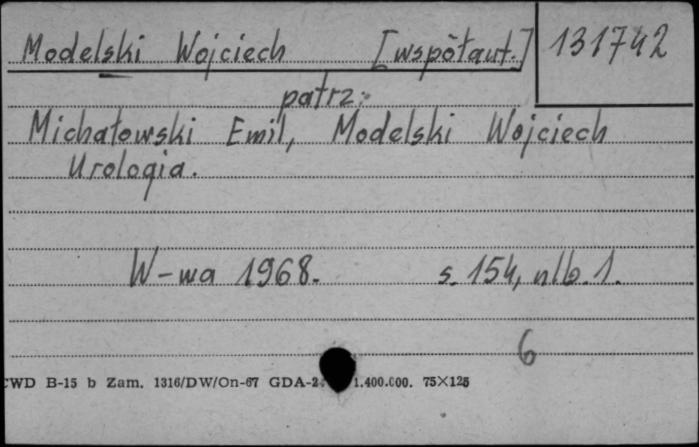 Modelski Wojciech [współaut.] 131742
patrz:
Michałowski Emil, Modelski Wojciech
Urologia.
W-wa 1968. s. 154, nlb. 1.
6
CWD B-15 b Zam. 1316/DW/On-67 GDA-2 1.400.000. 75×125